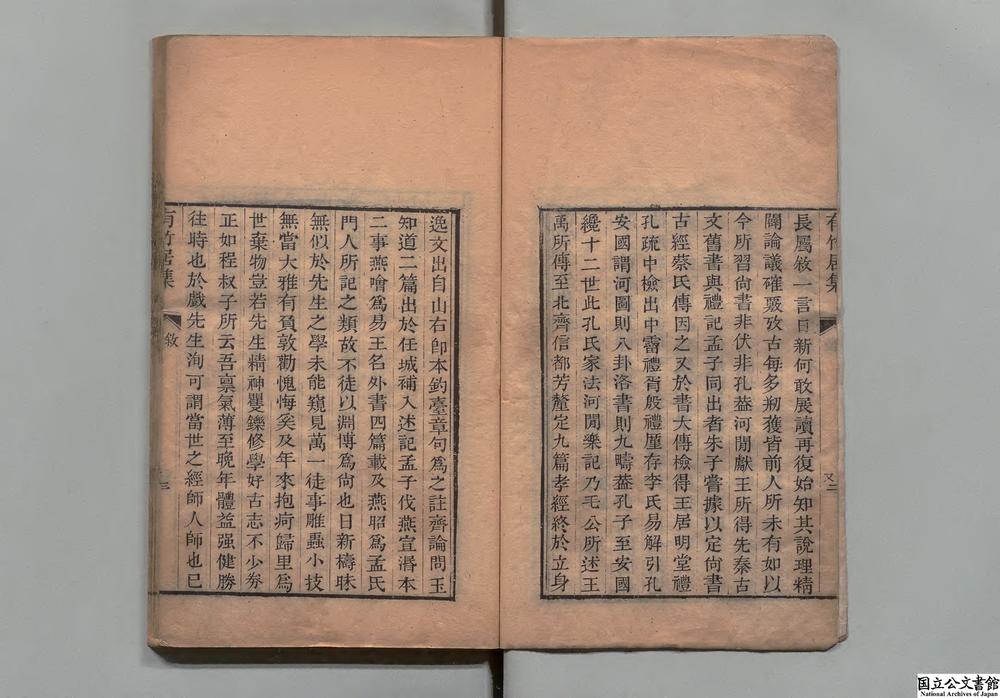 有竹居集
又二
長屬敘一言日新何敢展讀再復始知其說理精
闢論議確覈攷古每多刱獲皆前人所未有如以
今所習尙書非伏非孔葢河閒獻王所得先秦古
文舊書與禮記孟子同出者朱子嘗據以定尙書
古經蔡氏傳因之又於書大傳檢得王居明堂禮
孔疏中檢出中霤禮胥殷禮厪存李氏易解引孔
安國謂河圖則八卦洛書則九疇葢孔子至安國
纔十二世此孔氏家法河閒樂記乃毛公所述王
禹所傳至北齊信都芳釐定九篇孝經終於立身
逸文出自山右卽本釣臺章句爲之註齊論問玉
知道二篇出於任城補入述記孟子伐燕宣湣本
二事燕噲爲易王名外書四篇載及燕昭爲孟氏
門人所記之類故不徒以淵博爲尙也日新檮昧
無似於先生之學未能窺見萬一徒事雕蟲小技
無當大雅有負敦勸愧悔奚及年來抱疴歸里爲
世棄物豈若先生精神矍鑠修學好古志不少劵
正如程叔子所云吾稟氣薄至晚年體益强健勝
往時也於戲先生洵可謂當世之經師人師也巳
有竹居集
敘
三
国立公文書館
National Archives of Japan